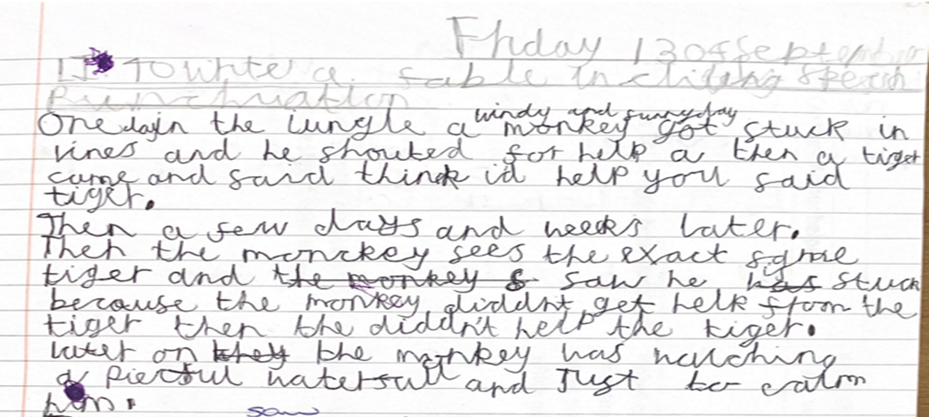 Friday 13th September
LI: To write a fable including speech
Punctuation
windy and sunny day
One day in the jungle a monkey got stuck in
vines and he shouted for help a then a tiger
came and said think i'd help you said
tiger.
Then a few days and weeks later.
Then the monckey sees the exact same
tiger and the monkey s saw he has stuck
because the monkey diddn't get help from the
tiger then the diddn't help the tiger.
later on they the monkey was watching
a waterfall and Just to calm
him.
saw